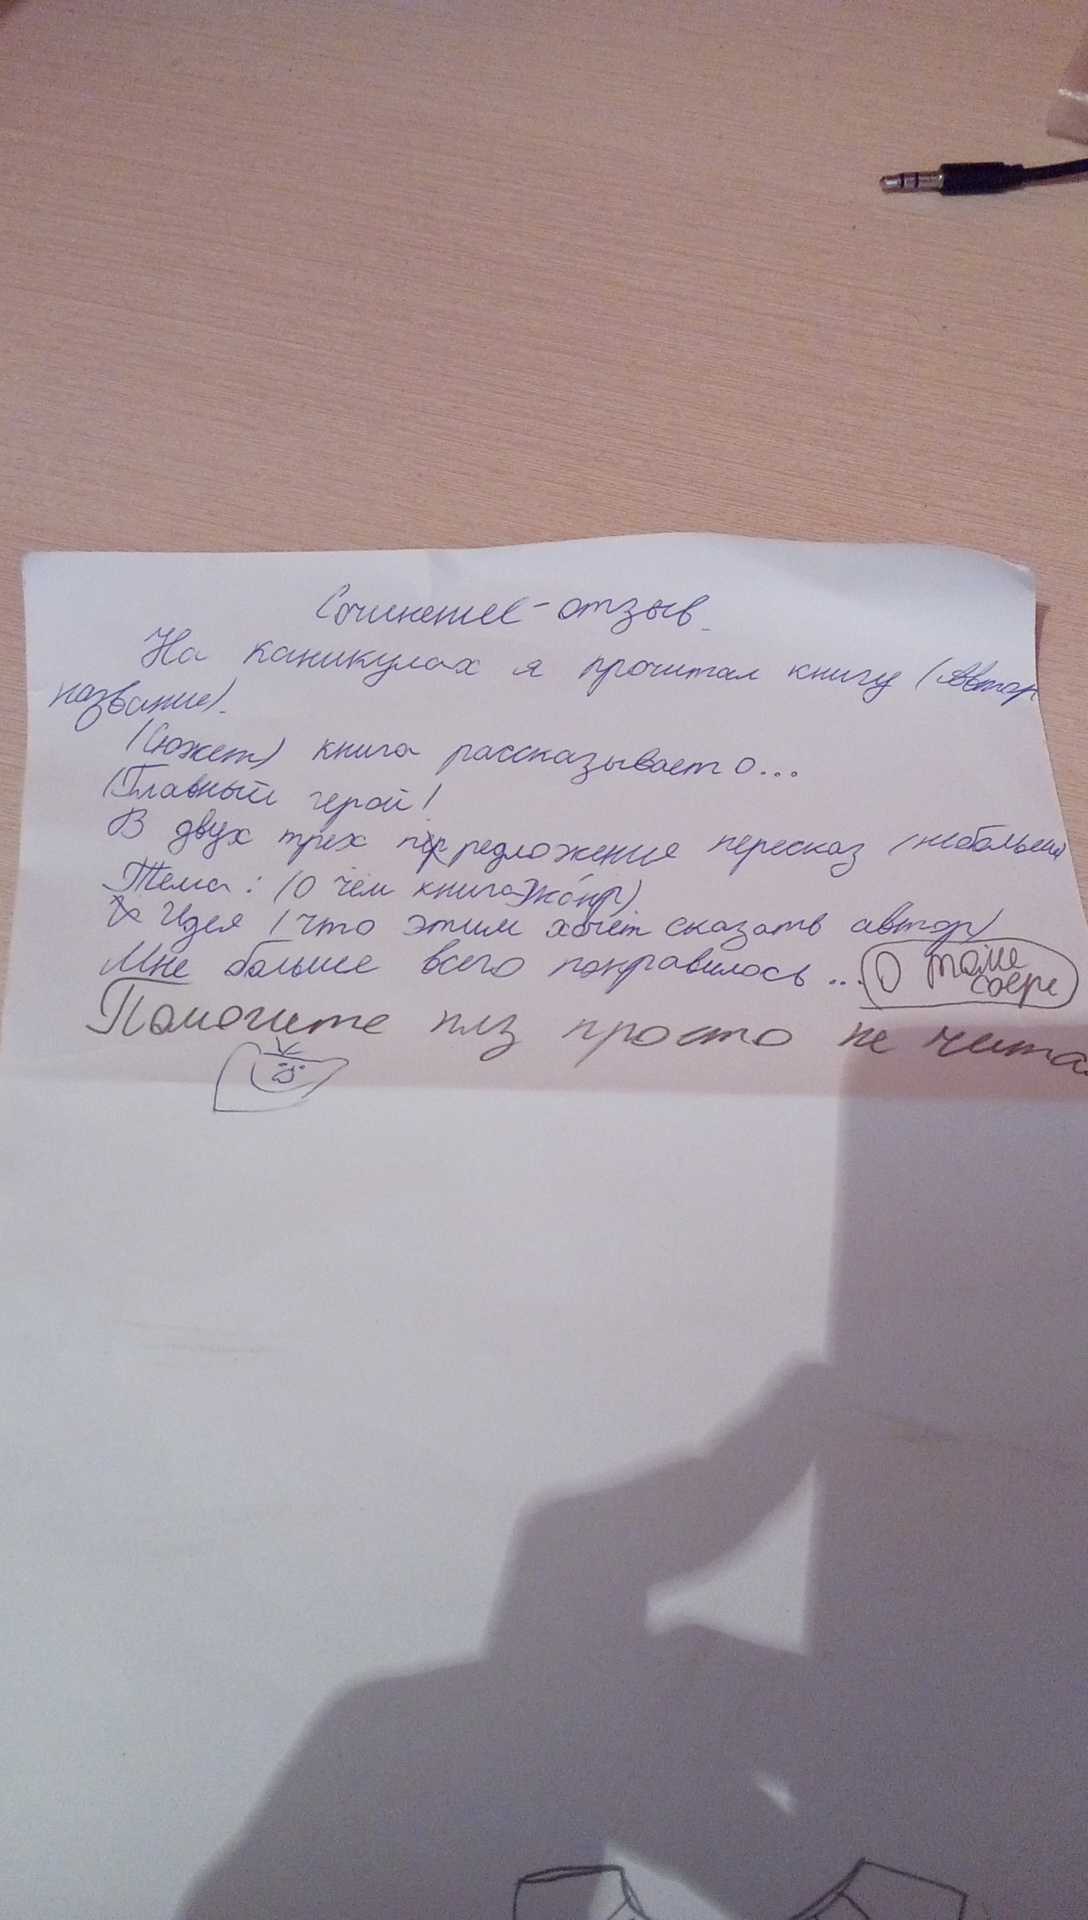 Сочинение-отзыв.
На каникулах я прочитал книгу (Автор
название).
(Сюжет) книга рассказывает о...
(Главный герой)
В двух трех предложение пересказ (небольшой
Тема: (О чём книга жанр)
Идея (что этим хочет сказать автор)
Мне больше всего понравилось ... О томе
соере
Помогите плз просто не чита